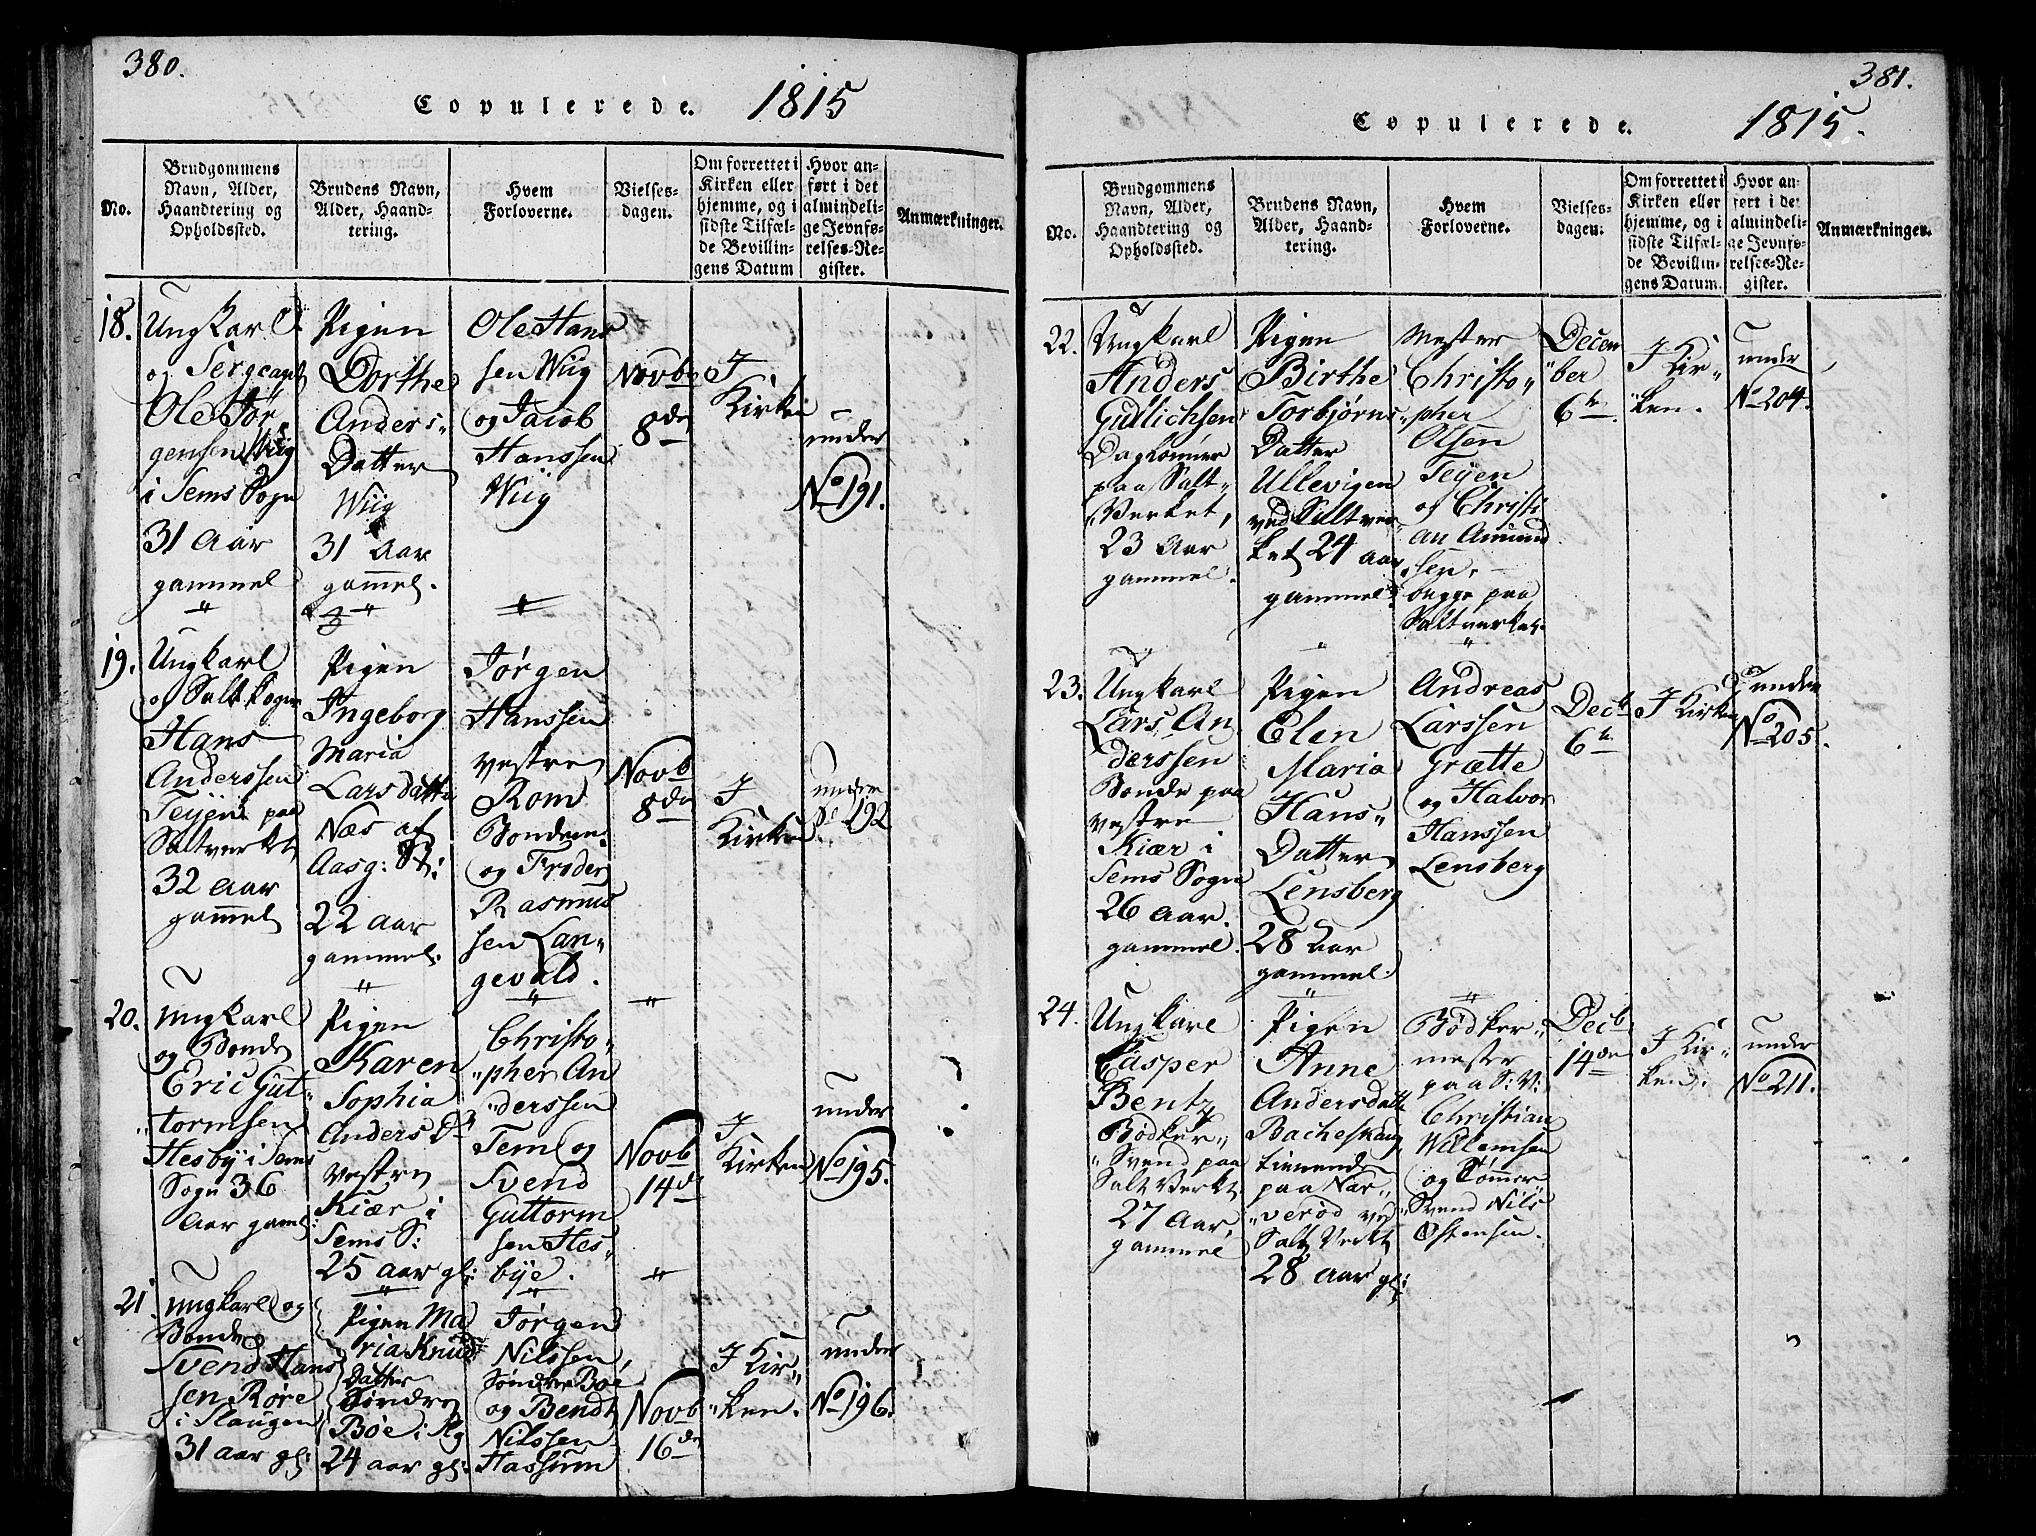 380.
Copulerede. 1815
No.
Brudgommens
Navn, Alder,
Haandtering og
Opholdssted.
Brudens Navn,
Alder, Haand-
tering.
Hvem
Forloverne.
Vielses-
dagen.
Om forrettet i
Kirken eller
hjemme, og i
sidste Tilfæl-
de Bevillin-
gens Datum
Hvor an-
ført i det
almindeli-
ge Jevnfø-
relses-Re-
gister.
Anmærkninger.
18.
Ungkarl
og Sergeant
Ole Jør
gensen Wiig
i Sems Sogn
31 Aar
gammel
Pigen
Dorthe
Anders-
Datter
Wiig
31 Aar
gammel.
Ole Hans
sen Wiig
og Jacob
Hanssen
Wiig
Novb
8de
I
Kirken
under
No 191.
19.
Ungkarl
og Saltkoger
Hans
Anderssen
Teyen paa
Saltverket
32 Aar
gammel
Pigen
Ingeborg
Maria
Larsdatter
Næs af
Aasg: St:
22 aar
gammel.
Jørgen
Hanssen
vestre
Rom
Bonden
og Froder
Rasmus
sen Lan-
gevald.
Novb
8de
I
Kirken
under
192
20.
Ungkarl
og Bonde
Eric Gut-
tormsen
Hesby i Sems
Sogn 36
Aar gaml:
Pigen
Karen
Sophia
Anders Dr
vestre
Kiær i
Sems S:
25 aar gl:
Christo-
pher An
derssen
Tem og
Svend
Guttorm
sen Hes-
bye.
Novb
14de
I
Kirken
under
No 195.
21
Ungkarl og
Bonde
Svend Hans
sen Røre
i Slaugen
31 aar gl:
Pigen Ma
ria Knud
Datter
Søndre
Bøe i
24 aar gl:
Jørgen
Nilssen,
Søndre Boe
og Bendt
Nilssen
Hassum
Novb
16de
I Kir-
ken.
under
No 196.
381.
Copulerede. 1815.
No.
Brudgommens
Navn, Alder,
Haandtering og
Opholdssted.
Brudens Navn,
Alder, Haand-
tering.
Hvem
Forloverne.
Vielses-
dagen.
Om forrettet i
Kirken eller
hjemme, og i
sidste Tilfæl-
de Bevillin-
gens Datum.
Hvor an-
ført i det
almindeli-
ge Jevnfø-
relses-Re-
gister.
Anmærkninger.
22.
Ungkarl
Anders
Gullichsen
Daglønner
paa Salt-
Verket,
23 Aar
gammel.
Pigen
Birthe
Torbjørns
Datter
Ullevigen
ved Saltver
ket 24 aar
gammel
Mester
Christo-
pher
Olsen
Teyen
og Christi
an Amund
sen,
begge paa
Saltverket.
Decem
ber
6te
I Kir-
ken.
under
No 204.
23.
Ungkarl
Lars An
derssen
Bonde paa
vestre
Kiær i
Sems Sogn
26 Aar.
gammel.
Pigen
Elen
Maria
Hans-
Datter
Lensberg
28 Aar
gammel.
Andreas
Larssen
Grætte
og Halvor
Hanssen
Lensberg
Decb
6te
I Kirken
under
No 205.
24.
Ungkarl
Casper
Bentz
Bødker-
Svend paa
Salt Verkt
27 Aar,
gammel
Pigen
Anne
Andersdatt
Bacheskaug
tienende
paa Nar-
verød ved
Salt Verkt
28 Aar gl:
Bødker-
mester
paa S: V:
Christian
Willemsen
og Tømmer
Svend Nils
Østensen.
Decb
14de
I Kir-
ken.
under
No 211.